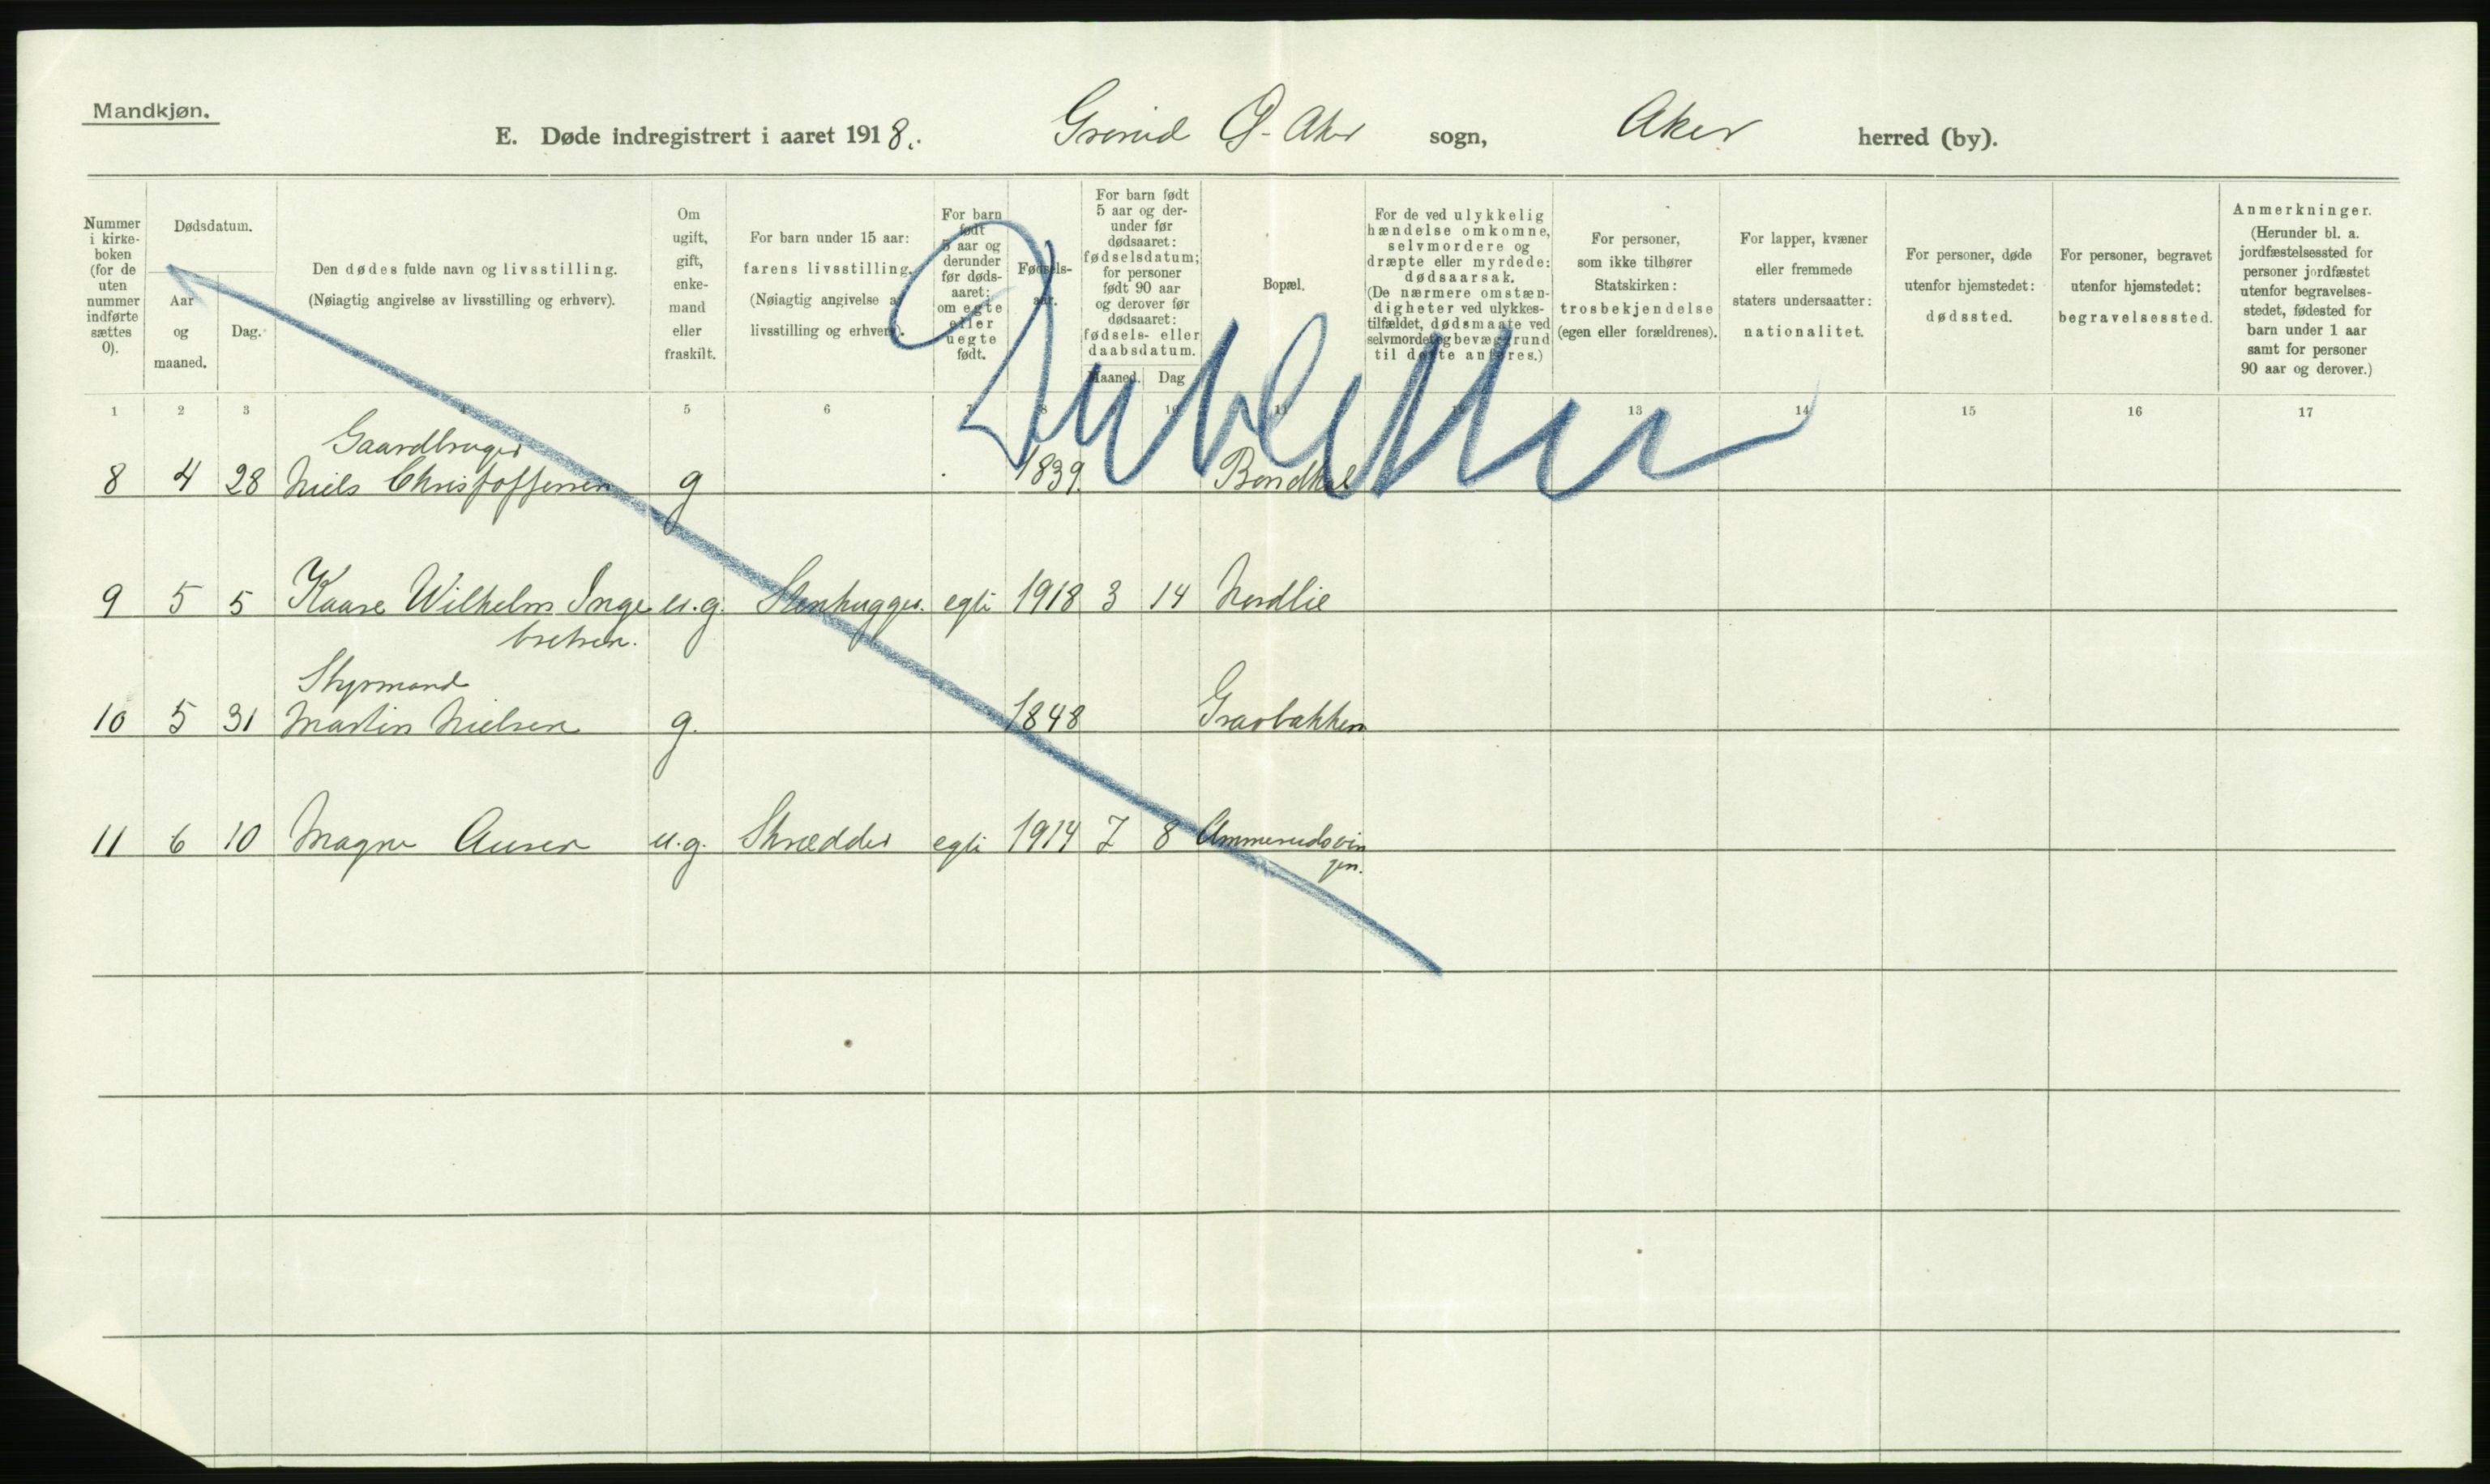 Mandkjøn.
E. Døde indregistrert i aaret 1918. Grorud Ø. Aker sogn, Aker herred (by).
Nummer i kirke- boken (for de uten nummer indførte sættes 0).
Dødsdatum.
Aar og maaned.
Dag.
Den dødes fulde navn og livsstilling.
(Nøiagtig angivelse av livsstilling og erhverv).
Om ugift, gift, enke- mand eller fraskilt.
For barn under 15 aar:
farens livsstilling.
(Nøiagtig angivelse av
livsstilling og erhverv).
For barn født 5 aar og derunder før døds- aaret: om egte eller uegte født.
Fødsels- aar.
For barn født 5 aar og der- under før dødsaaret: fødselsdatum; for personer født 90 aar og derover før dødsaaret: fødsels- eller daabsdatum.
Maaned. Dag
Bopæl.
For de ved ulykkelig hændelse omkomne, selvmordere og dræpte eller myrdede: dødsaarsak.
(De nærmere omstæn- digheter ved ulykkes- tilfældet, dødsmaate ved selvmordet og bevæggrund til dette anføres.)
For personer, som ikke tilhører Statskirken: trosbekjendelse (egen eller forældrenes).
For lapper, kvæner eller fremmede staters undersaatter: nationalitet.
For personer, døde utenfor hjemstedet: dødssted.
For personer, begravet utenfor hjemstedet: begravelsessted.
Anmerkninger.
(Herunder bl. a. jordfæstelsessted for personer jordfæstet utenfor begravelses- stedet, fødested for barn under 1 aar samt for personer 90 aar og derover.)
1 2 3 4 5 6 7 8 10 11 12 13 14 15 16 17
Dubletter
Gaardbruger
8 4 28 Niels Christoffersen g 1839.
9 5 5 Kaare Wilhelm Inge u.g. Stenhugger. egte 1918 3 14 Nordlie
bretsen.
Styrmand
10 5 31 Martin Nielsen g. 1848 Gravbakken
11 6 10 Magne u.g. Skrædder egte 1914 7 8 Ammerudsvin
gen.